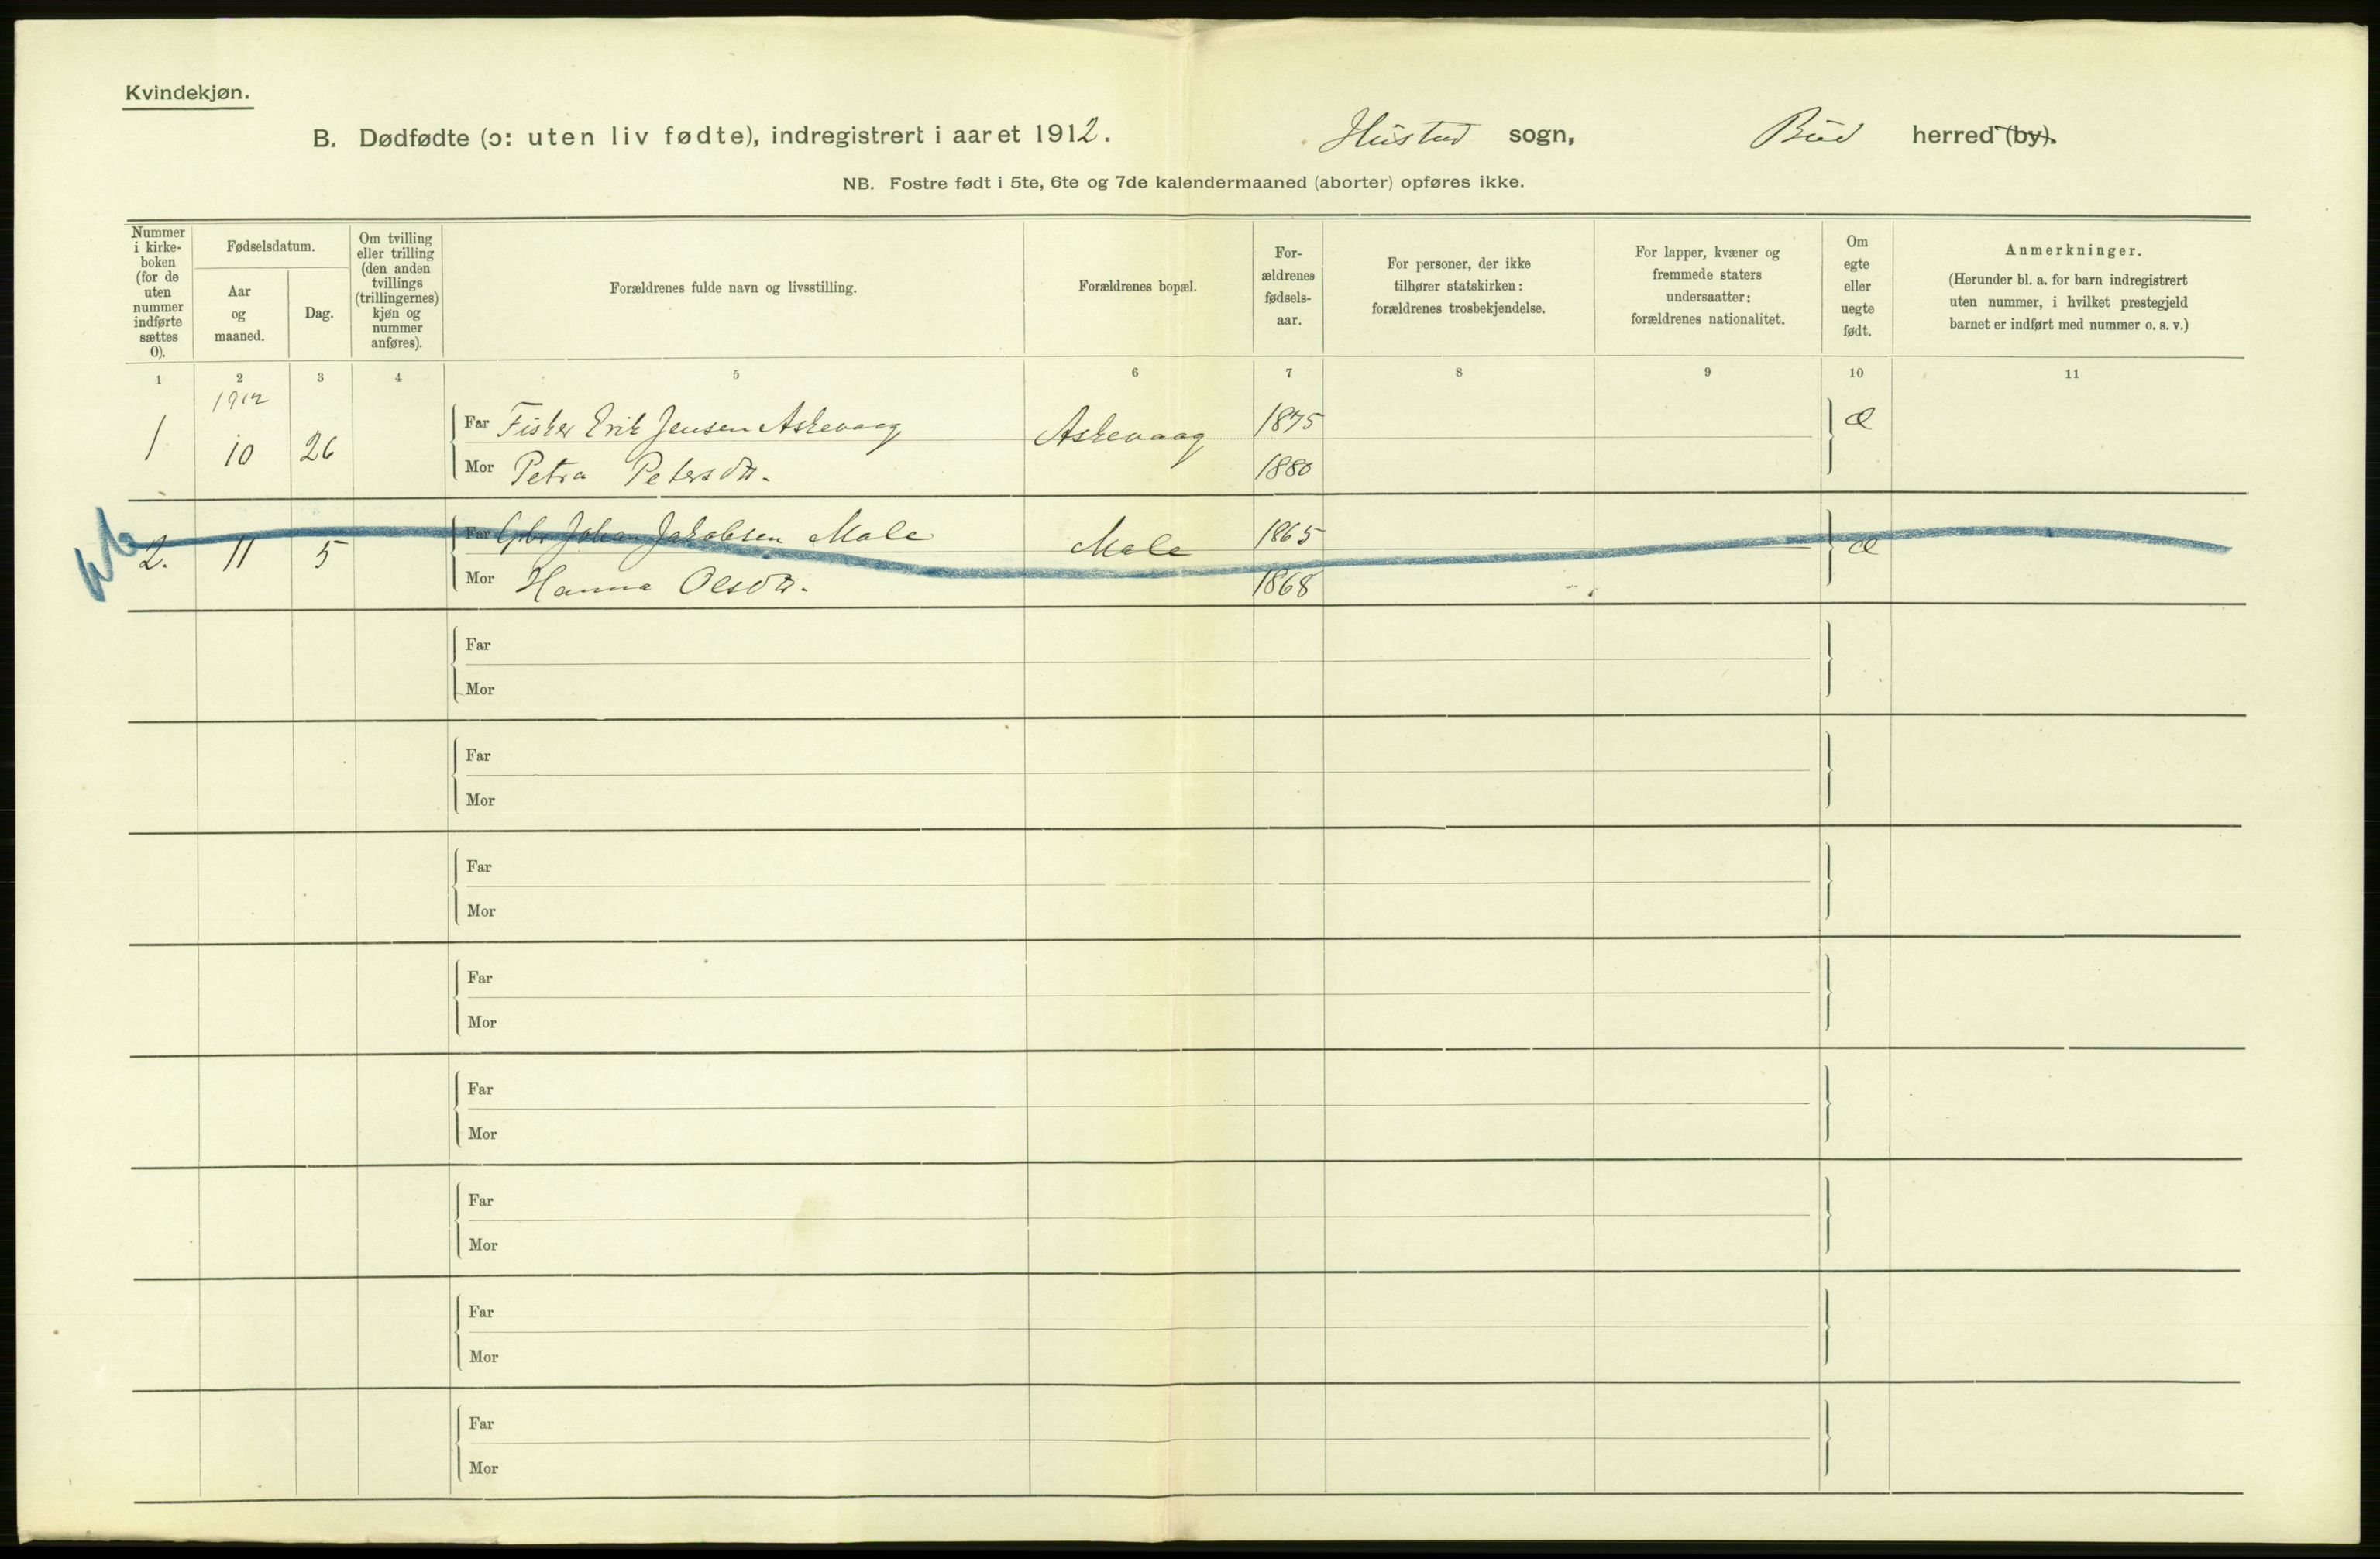 Kvindekjøn.
B. Dødfødte (ɔ: uten liv fødte), indregistrert i aaret 1912. Hustad sogn, Bud herred (by).
NB. Fostre født i 5te, 6te og 7de kalendermaaned (aborter) opføres ikke.
Nummer i kirkeboken (for de uten nummer indførte sættes 0).
Fødselsdatum.
Aar og maaned.
Dag.
Om tvilling eller trilling (den anden tvillings (trillingernes) kjøn og nummer anføres).
Forældrenes fulde navn og livsstilling.
Forældrenes bopæl.
Forældrenes fødselsaar.
For personer, der ikke tilhører statskirken: forældrenes trosbekjendelse.
For lapper, kvæner og fremmede staters undersaatter: forældrenes nationalitet.
Om egte eller uegte født.
Anmerkninger.
(Herunder bl. a. for barn indregistrert uten nummer, i hvilket prestegjeld barnet er indført med nummer o. s. v.)
1 2 3 4 5 6 7 8 9 10 11
1912
1 10 26 Far Fisker Erik Jensen Askevaag Askevaag 1875 Æ
Mor Petra Petersdtr. 1880
2. 11 5 Far Gbr Johan Jakobsen Male Male 1865 Æ
Mor Hanna Olsdtr. 1868
Far
Mor
Far
Mor
Far
Mor
Far
Mor
Far
Mor
Far
Mor
Far
Mor
Far
Mor